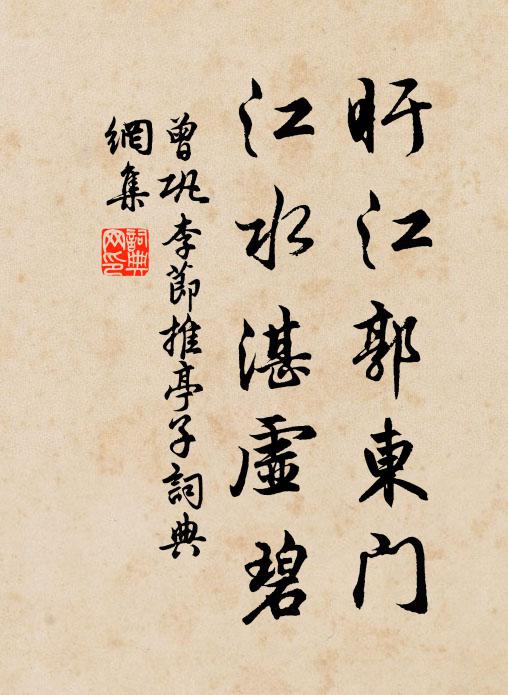 盱江郭東門
江水湛虛碧
曾巩李節推亭子詞典
網集
詞典
网印